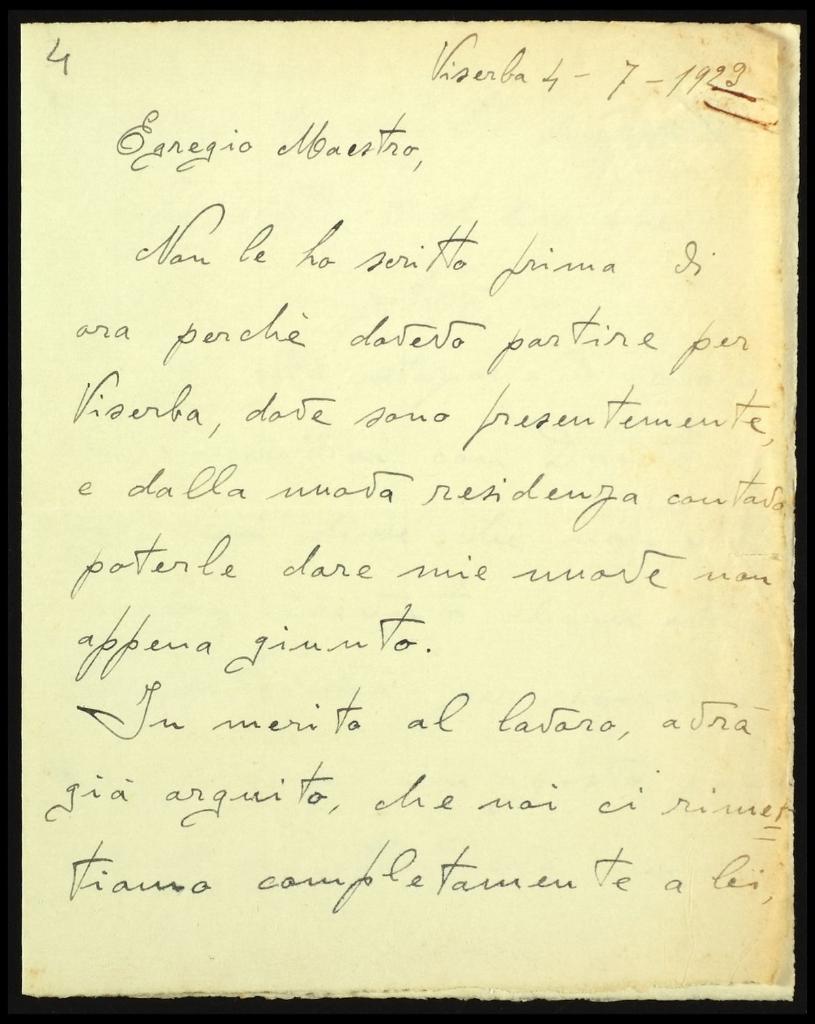 4
Viserba 4 - 7 - 1923
Egregio Maestro,
Non le ho scritto prima di
ora perchè dovevo partire per
Viserba, dove sono presentemente,
e dalla nuova residenza contavo
poterle dare mie nuove non
appena giunto.
In merito al lavoro, avrà
già arguito, che noi ci rimet=
tiamo completamente a lei,